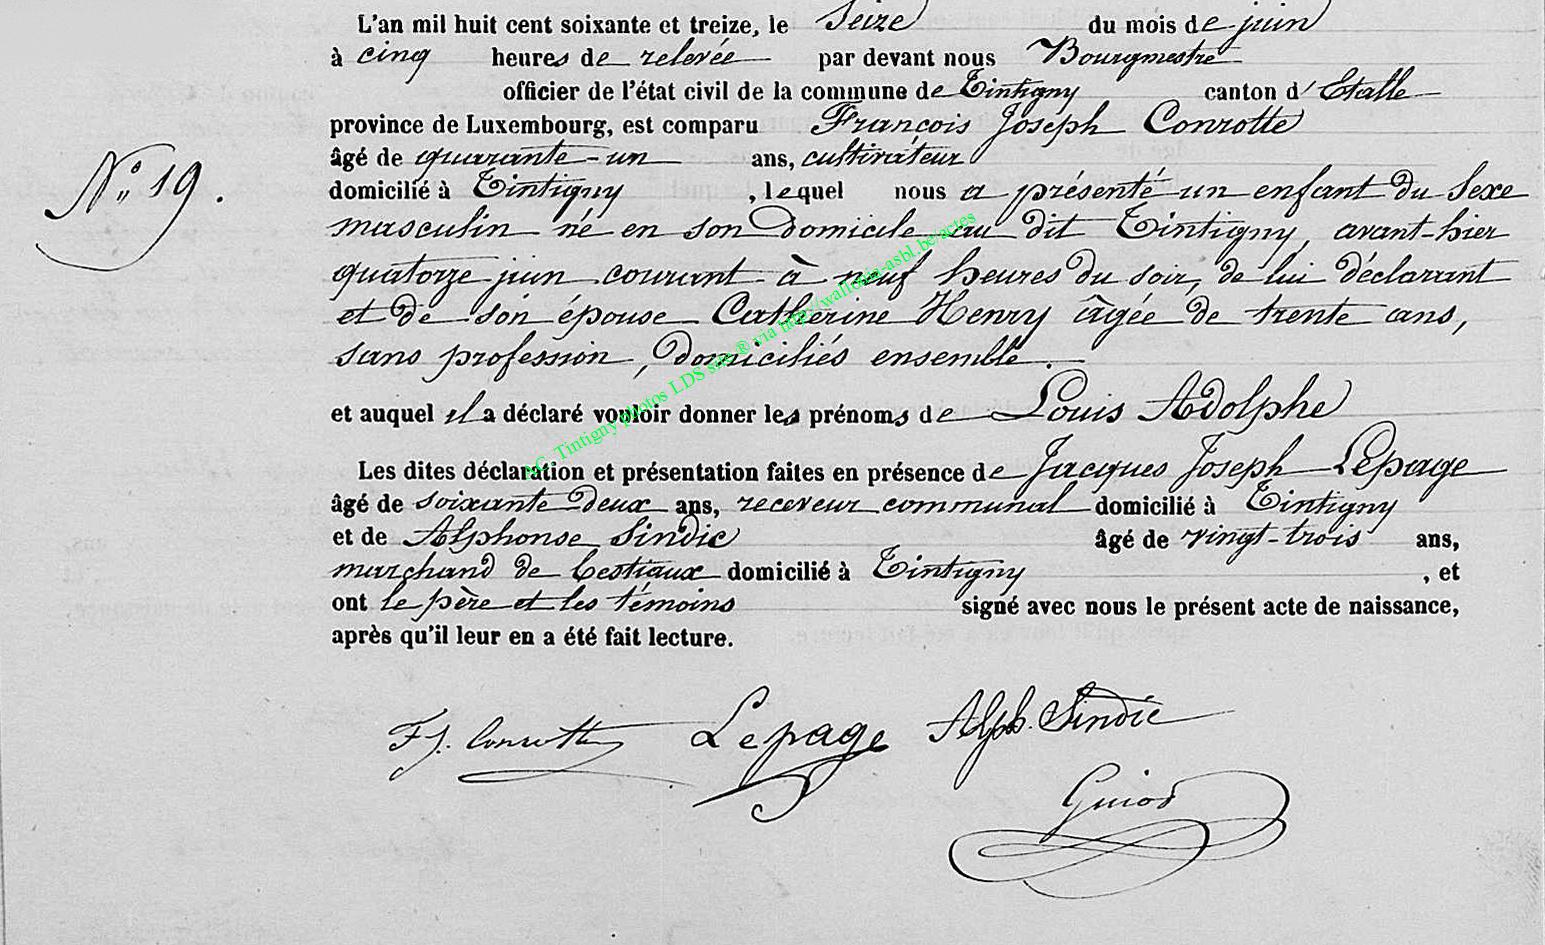 L'an mil huit cent soixante et treize, le Seize du mois de juin
à cinq heures de relevée par devant nous Bourgmestre
officier de l'état civil de la commune de Tintigny canton d'Etalle
province de Luxembourg, est comparu François Joseph Conrotte
âgé de quarante-un ans, cultivateur
N° 19.
domicilié à Tintigny, lequel nous a présenté un enfant du Sexe
masculin né en son domicile au dit Tintigny, avant-hier
quatorze juin courant à neuf heures du soir, de lui déclarant
et de son épouse Catherine Henry âgée de trente ans,
sans profession, domiciliés ensemble.
et auquel il a déclaré vouloir donner les prénoms de Louis Adolphe
Les dites déclaration et présentation faites en présence de Jacques Joseph Lepage
âgé de soixante deux ans, receveur communal domicilié à Tintigny
et de Alphonse Sindic âgé de vingt-trois ans,
marchand de bestiaux domicilié à Tintigny, et
ont le père et les témoins signé avec nous le présent acte de naissance,
après qu'il leur en a été fait lecture.
F. J. Conrotte Lepage Alph. Sindic
Guiot
AC. Tintigny photos LDS site ® via http://wallonia-asbl.be/actes